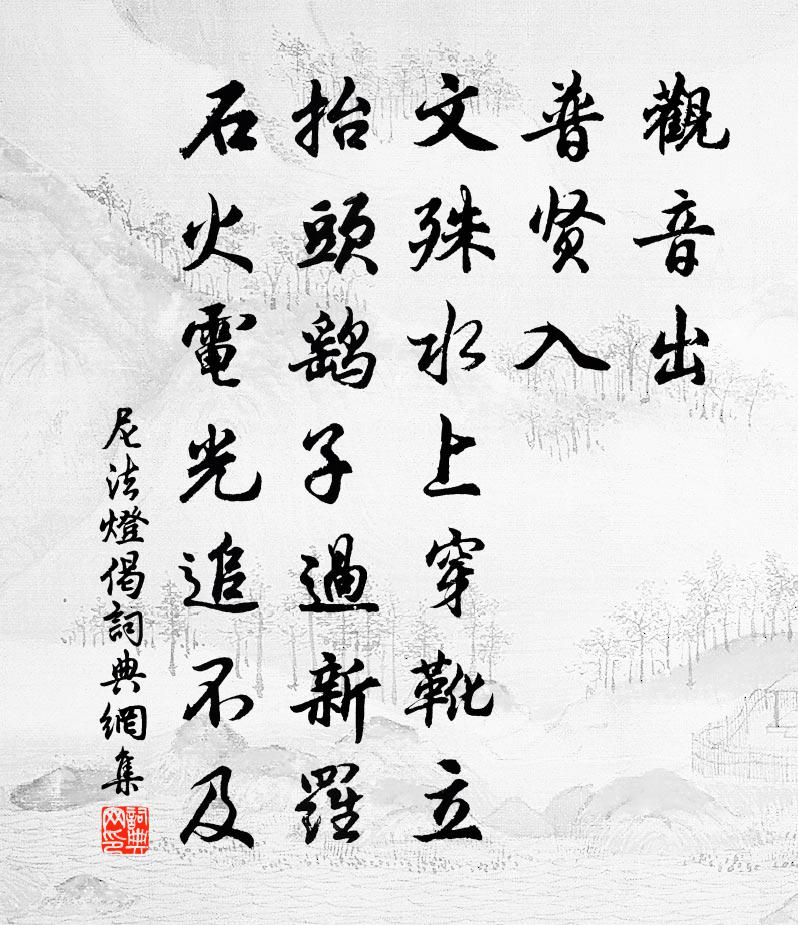 觀音出
普贤入
文殊水上穿靴立
抬頭鷂子過新羅
石火電光追不及
尼法燈偈詞典網集
詞典网印